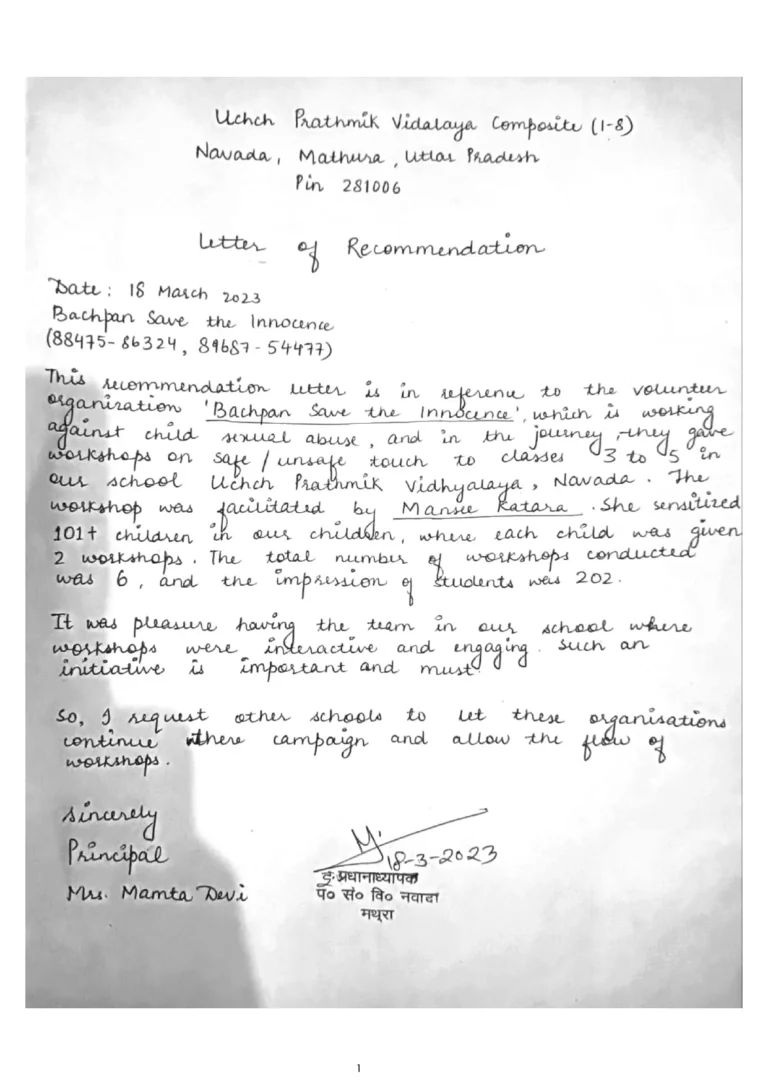 Uchch Prathmik Vidalaya Composite (1-8)
Navada, Mathura, Uttar Pradesh
Pin 281006
Letter of Recommendation
Date: 18 March 2023
Bachpan Save the Innocence
(88475-86324, 89687-54477)
This recommendation letter is in reference to the volunteer
organization 'Bachpan Save the Innocence', which is working
against child sexual abuse, and in the journey, they gave
workshops on safe/unsafe touch to classes 3 to 5 in
our school Uchch Prathmik Vidhyalaya, Navada. The
workshop was facilitated by Mansee Katara. She sensitized
101+ children in our children, where each child was given
2 workshops. The total number of workshops conducted
was 6, and the impression of students was 202.
It was pleasure having the team in our school where
workshops were interactive and engaging. Such an
initiative is important and must.
So, I request other schools to let these organisations
continue there campaign and allow the flow of
workshops.
Sincerely
Principal
Mrs. Mamta Devi
18-3-2023
इ. प्रधानाध्यापक
पू० सं० वि० नवादा
मथुरा
1